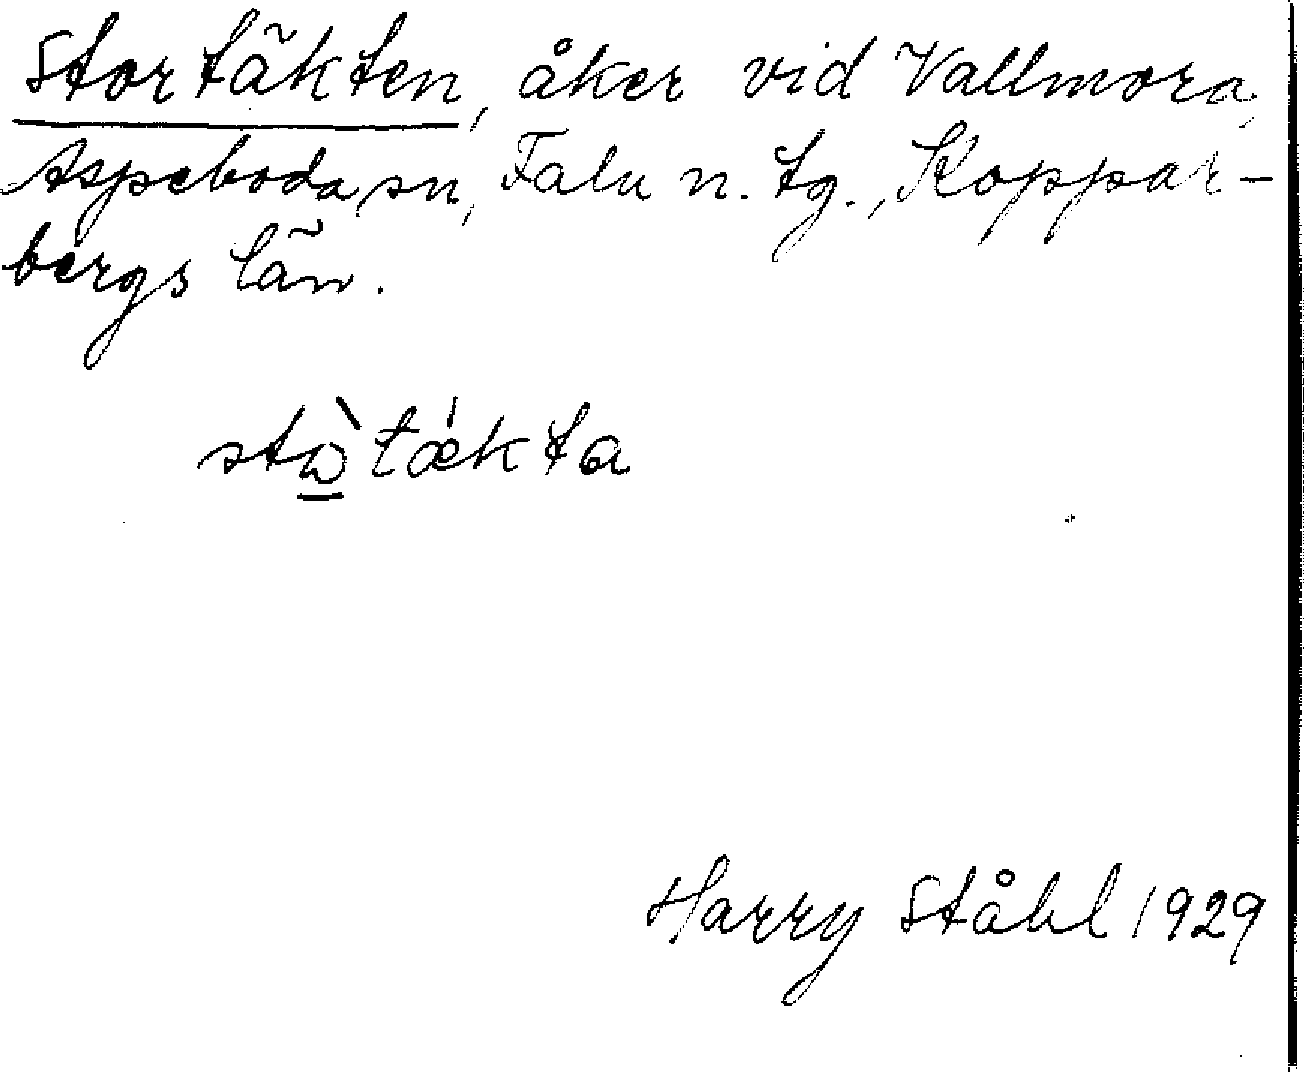 Stortäkten, åker vid Vallmora,
Aspeboda sn, Falu n. tg., Koppar-
bergs län.
stὼ̲tǽkta
Harry Ståhl 1929